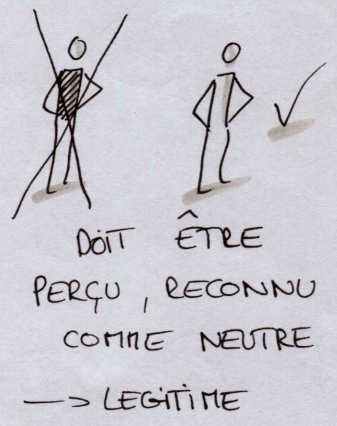 DOIT ÊTRE
PERÇU, RECONNU
COMME NEUTRE
—> LEGITIME